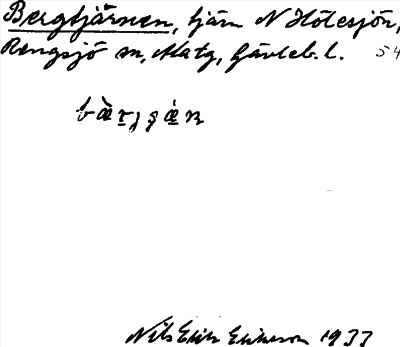 Bergtjärnen, tjärn N Hölesjön,
Rengsjö sn, Matg, Gävleb. l. 54
Nils Erik Eriksson 1933